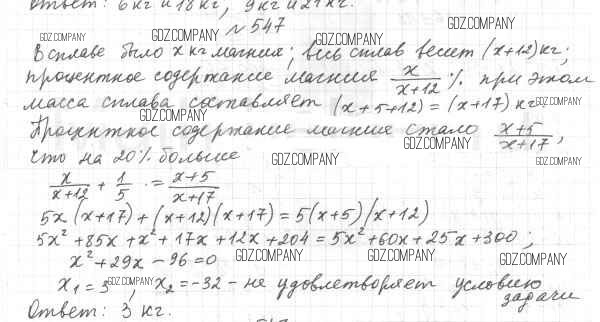 Ответ: 6 кг и 18 кг, 9 кг и 21 кг.
№ 547
GDZ.COMPANY
GDZ.COMPANY GDZ.COMPANY GDZ.COMPANY
В сплаве было x кг магния; весь сплав весит (x+12) кг;
процентное содержание магния x/(x+12) % при этом
масса сплава составляет (x+5+12) = (x+17) кг
GDZ.COMPANY
GDZ.COMPANY
Процентное содержание магния стало (x+5)/(x+17),
GDZ.COMPANY
что на 20% больше
GDZ.COMPANY GDZ.COMPANY
x/(x+12) + 1/5 · = (x+5)/(x+17)
5x(x+17)+(x+12)(x+17)=5(x+5)(x+12)
5x²+85x+x²+17x+12x+204=5x²+60x+25x+300;
x²+29x-96=0
GDZ.COMPANY GDZ.COMPANY GDZ.COMPANY
x₁=3, x₂=-32 - не удовлетворяет условию
GDZ.COMPANY
задачи
Ответ: 3 кг.